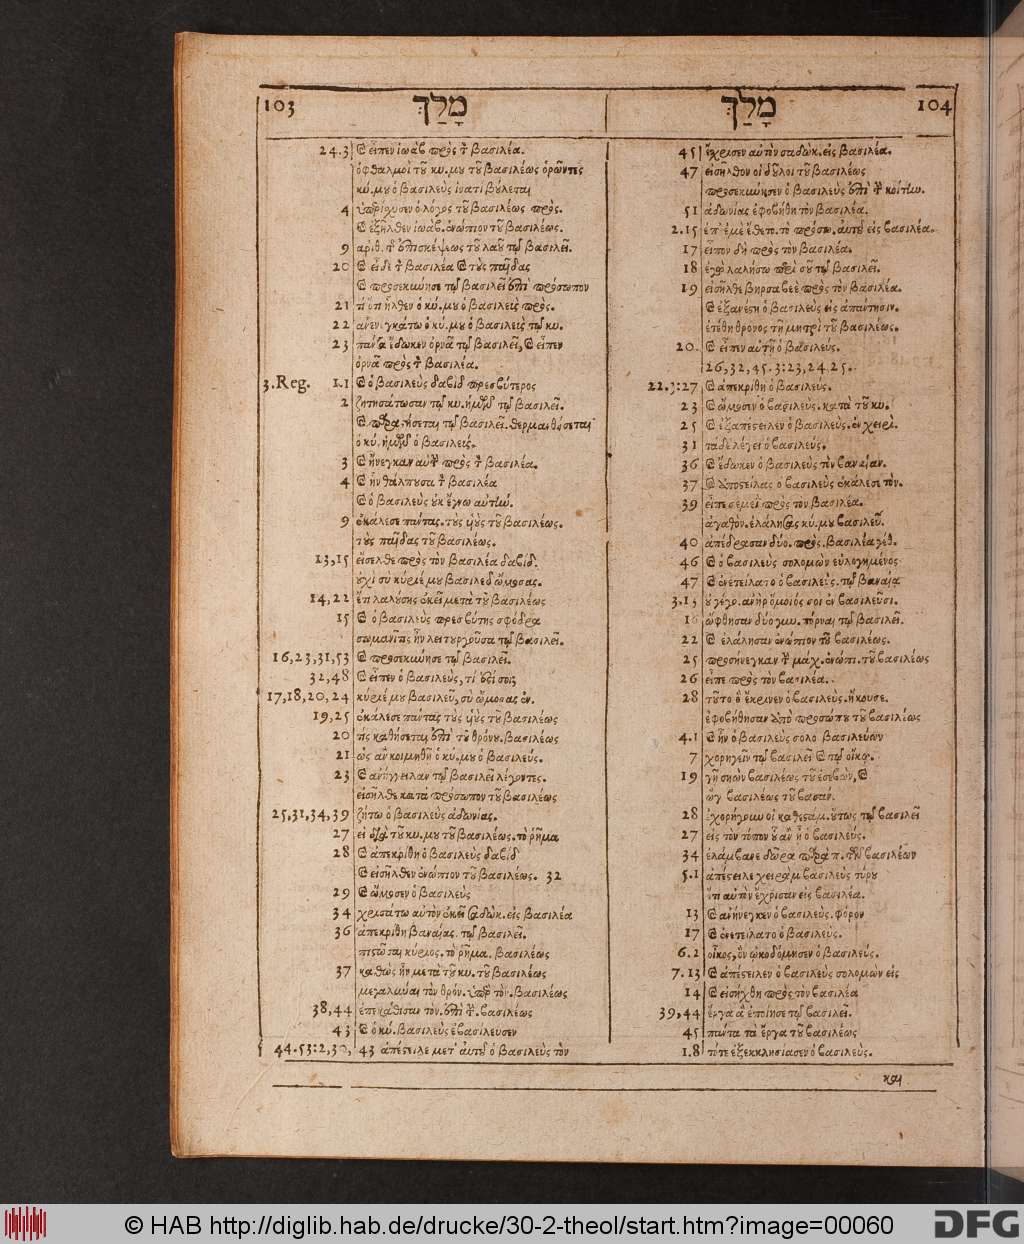 103 מָלַךְ
24.3 Ͼ εἶπεν ἰωὰβ πρὸς τ̃ βασιλέα.
ὀφθαλμοὶ τοῦ κυ. μου τοῦ βασιλέως ὁρῶντες
κύ. μου ὁ βασιλεὺς ἱνατί βούλεται
4 ὑπερίσχυσεν ὁ λόγος τοῦ βασιλέως πρὸς.
καὶ ἐξῆλθεν ἰωαβ. ἐνώπιον τοῦ βασιλέως.
9 αριθ. τ̃ ἐπισκέψεως τοῦ λαοῦ τῷ βασιλεῖ.
20 καὶ εἶδε τ̃ βασιλέα καὶ τοὺς παῖδας
καὶ προσεκύνησε τῷ βασιλεῖ ἐπὶ πρόσωπον
21 τί ὅτι ἦλθεν ὁ κύ. μου ὁ βασιλεὺς πρὸς.
22 ἀνενεγκάτω ὁ κύ. μου ὁ βασιλεὺς τῷ κυ.
23 πάντα ἔδωκεν ὀρνᾶ τῷ βασιλεῖ, καὶ εἶπεν
ὀρνᾶ πρὸς τ̃ βασιλέα.
3. Reg. 1.1 καὶ ὁ βασιλεὺς δαβὶδ πρεσβύτερος
2 ζητησάτωσαν τῷ κυ. ἡμῶν τῷ βασιλεῖ.
ὁ κύ. ἡμῶν ὁ βασιλεύς.
3 καὶ ἤνεγκαν αὐτ̃ πρὸς τ̃ βασιλέα.
4 καὶ ἦν θάλπουσα τ̃ βασιλέα
καὶ ὁ βασιλεὺς οὐκ ἔγνω αὐτήν.
9 ἐκάλεσε πάντας. τους υἱοὺς τοῦ βασιλέως.
τοὺς παῖδας τοῦ βασιλέως.
13,15 εἴσελθε πρὸς τὸν βασιλέα δαβίδ.
οὐχὶ σὺ κύριέ μου βασιλεῦ ὤμοσας.
14,22 ἔτι λαλούσης ἐκεῖ μετὰ τοῦ βασιλέως
15 καὶ ὁ βασιλεὺς πρεσβύτης σφόδρα
σωμανῖτις ἦν λειτουργοῦσα τῷ βασιλεῖ.
16,23,31,53 καὶ προσεκύνησε τῷ βασιλεῖ.
32,48 καὶ εἶπεν ὁ βασιλεὺς, τί ἐστί σοι;
17,18,20,24 κύριέ μου βασιλεῦ, σὺ ὤμοσας ἐν.
19,25 ἐκάλεσε πάντας τοὺς υἱοὺς τοῦ βασιλέως
20 τίς καθήσεται ἐπὶ τοῦ θρόνου. βασιλέως
21 ὡς ἂν κοιμηθῇ ὁ κύ. μου ὁ βασιλεύς.
23 καὶ ἀνήγγειλαν τῷ βασιλεῖ λέγοντες.
εἰσῆλθε κατὰ πρόσωπον τοῦ βασιλέως
25,31,34,39 ζήτω ὁ βασιλεὺς ἀδωνίας.
27 εἰ διὰ τοῦ κυ. μου τοῦ βασιλέως. τὸ ῥῆμα
28 καὶ ἀπεκρίθη ὁ βασιλεὺς δαβίδ
καὶ εἰσῆλθεν ἐνώπιον τοῦ βασιλέως. 32
29 καὶ ὤμοσεν ὁ βασιλεὺς
34 χρισάτω αὐτὸν ἐκεῖ σαδώκ. εἰς βασιλέα
36 ἀπεκρίθη βαναίας. τῷ βασιλεῖ.
πιστῶσαι κύριος. τὸ ῥῆμα. βασιλέως
37 καθὼς ἦν μετὰ τοῦ κυ. τοῦ βασιλέως
μεγαλύναι τὸν θρόν. ὑπὲρ τὸν. βασιλέως
38,44 ἐπεκάθισαν τον. ἐπὶ τ̃. βασιλέως
43 καὶ ὁ κύ. βασιλεὺς ἐβασίλευσεν
44.53:2,30, 43 ἀπέστειλε μετ' αὐτοῦ ὁ βασιλεὺς τὸν
מָלַךְ 104
45 ἔχρισεν αὐτὸν σαδώκ. εἰς βασιλέα.
47 εἰσῆλθον οἱ δοῦλοι τοῦ βασιλέως
προσεκύνησεν ὁ βασιλεὺς ἐπὶ τ̃ κοίτην.
51 ἀδωνίας ἐφοβήθη τὸν βασιλέα.
2.15 ἐπ' ἐμὲ ἔθετο. τὸ πρόσω. αὐτοῦ εἰς βασιλέα.
17 εἶπον δὴ πρὸς τὸν βασιλέα.
18 ἐγὼ λαλήσω περὶ σοῦ τῷ βασιλεῖ.
19 εἰσῆλθε βηρσαβεὲ πρὸς τὸν βασιλέα.
καὶ ἐξανέστη ὁ βασιλεὺς εἰς ἀπάντησιν.
ἐτέθη θρόνος τῇ μητρὶ τοῦ βασιλέως.
20. καὶ εἶπεν αὐτῇ ὁ βασιλεύς.
26,32,45.3:23,24.25.
22.3:27 καὶ ἀπεκρίθη ὁ βασιλεύς.
23 καὶ ὤμοσεν ὁ βασιλεὺς. κατὰ τοῦ κυ.
25 καὶ ἐξαπέστειλεν ὁ βασιλεὺς. ἐν χειρὶ.
31 τάδε λέγει ὁ βασιλεύς.
36 καὶ ἔδωκεν ὁ βασιλεὺς τὸν βαναίαν.
37 καὶ ἀποστείλας ὁ βασιλεὺς ἐκάλεσε τὸν.
39 εἶπε σεμεῒ πρὸς τον βασιλέα.
ἀγαθὸν. ἐλάλησας κύ. μου βασιλεῦ.
40 ἀπέδρασαν δύο. πρὸς. βασιλέα γέθ.
46 καὶ ὁ βασιλεὺς σολομὼν εὐλογημένος
47 καὶ ἐνετείλατο ὁ βασιλεὺς. τῷ βαναίᾳ
3.13 οὐ γέγο. ἀνὴρ ὅμοιός σοι ἐν βασιλεῦσι.
16 ὤφθησαν δύο γυν. πόρναι τῷ βασιλεῖ.
22 καὶ ἐλάλησαν ἐνώπιον τοῦ βασιλέως.
25 προσήνεγκαν τ̃ μάχ. ἐνώπι. τοῦ βασιλέως
26 εἶπε πρὸς τὸν βασιλέα.
28 τοῦτο ὃ ἔκρινεν ὁ βασιλεὺς. ἤκουσε.
ἐφοβήθησαν ἀπὸ προσώπου τοῦ βασιλέως
4.1 καὶ ἦν ὁ βασιλεὺς σολο βασιλεύων
7 χορηγεῖν τῷ βασιλεῖ καὶ τῷ οἴκῳ.
19 γῇ σηὼν βασιλέως τοῦ ἐσεβὼν, καὶ
ὢγ βασιλέως τοῦ βασάν.
28 ἐχορήγουν οἱ καθεσταμ. οὕτως τῷ βασιλεῖ
27 εἰς τὸν τόπον οὗ ἂν ᾖ ὁ βασιλεύς.
34 ἐλάμβανε δῶρα παρὰ π. τῶν βασιλέων
5.1 ἀπέστειλε χειρὰμ βασιλεὺς τύρου
ὅτι αὐτὸν ἔχρισαν εἰς βασιλέα.
13 καὶ ἀνήνεγκεν ὁ βασιλεὺς. φόρον
17 καὶ ἐνετείλατο ὁ βασιλεύς.
6.2 οἶκος, ὃν ᾠκοδόμησεν ὁ βασιλεύς.
7.13 καὶ ἀπέστειλεν ὁ βασιλεὺς σολομὼν εἰς
14 καὶ εἰσήχθη πρὸς τὸν βασιλέα
39,44 ἔργα ἃ ἐποίησε τῷ βασιλεῖ.
45 πάντα τὰ ἔργα τοῦ βασιλέως
1.8 τότε ἐξεκκλησίασεν ὁ βασιλεύς.
καὶ
© HAB http://diglib.hab.de/drucke/30-2-theol/start.htm?image=00060
DFG